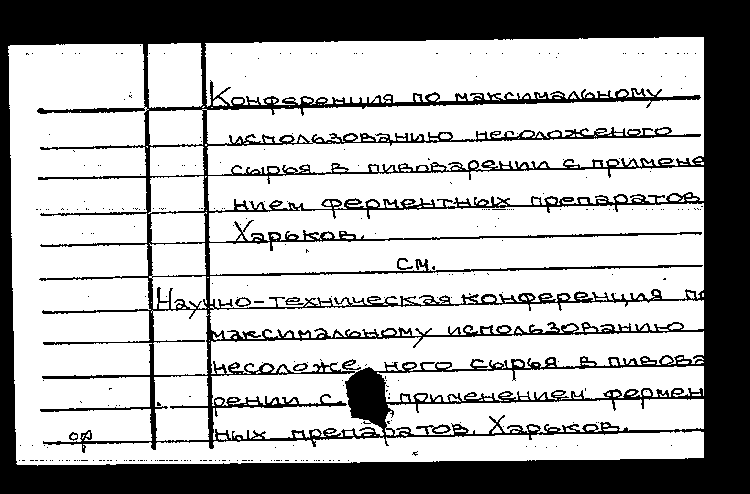 Конференция по максимальному
использованию несоложеного
сырья в пивоварении с примене
нием ферментных препаратов
Харьков.
см.
Научно-техническая конференция по
максимальному использованию
несоложе ного сырья в пивова
рении с применением фермен
ных препаратов. Харьков.
ор